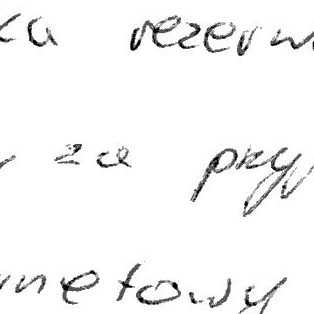 ka rezerw
za przy
rnetowy